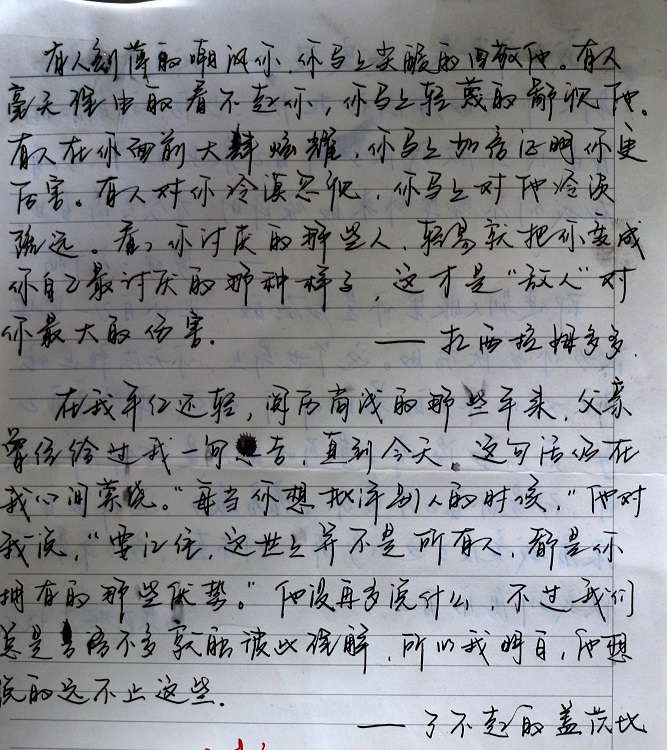 有人刻薄的嘲讽你，你马上尖酸的回敬他。有人
毫无理由的看不起你，你马上轻蔑的鄙视他。
有人在你面前大肆炫耀，你马上加倍证明你更
厉害。有人对你冷漠忽视，你马上对他冷淡
疏远。看，你讨厌的那些人，轻易就把你变成
你自己最讨厌的那种样子，这才是“敌人”对
你最大的伤害。
——扎西拉姆多多.
在我年纪还轻，阅历尚浅的那些年来，父亲
曾经给过我一句 告，直到今天，这句话仍在
我心间萦绕。“每当你想批评别人的时候，”他对
我说，“要记住，这世上并不是所有人，都是你
拥有的那些优势。”他没再多说什么，不过我们
总是 语不多就能彼此理解，所以我明白，他想
说的远不止这些.
——了不起的盖茨比